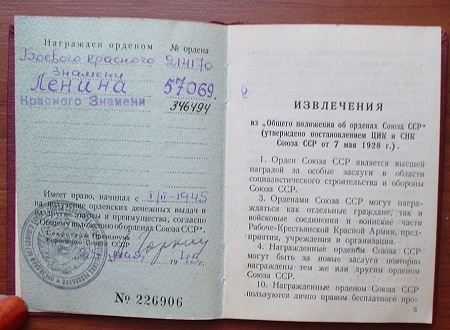 Награжден орденом № ордена
Боевого красного 214170
Знамени
Ленина 57069.
Красного Знамени 346494
Имеет право, начиная с 1/II-1945
на получение орденских денежных выдач и
на другие льготы и преимущества, согласно
„Общему положению об орденах Союза ССР"
Секретарь Президиума
Верховного Совета СССР
Горкин
1945 г.
№ 226906
ИЗВЛЕЧЕНИЯ
из „Общего положения об орденах Союза ССР"
(утверждено постановлением ЦИК и СНК
Союза ССР от 7 мая 1928 г.).
1. Орден Союза ССР является высшей
наградой за особые заслуги в области
социалистического строительства и обороны
Союза ССР.
3. Орденами Союза ССР могут на-
граждаться как отдельные граждане, так и
войсковые соединения и воинские части
Рабоче-Крестьянской Красной Армии, пред-
приятия, учреждения и организации.
4. Награжденные орденом Союза ССР
могут быть за новые заслуги повторно
награждены тем же или другим орденом
Союза ССР.
10. Награжденные орденом Союза ССР
пользуются лично правом бесплатного про-